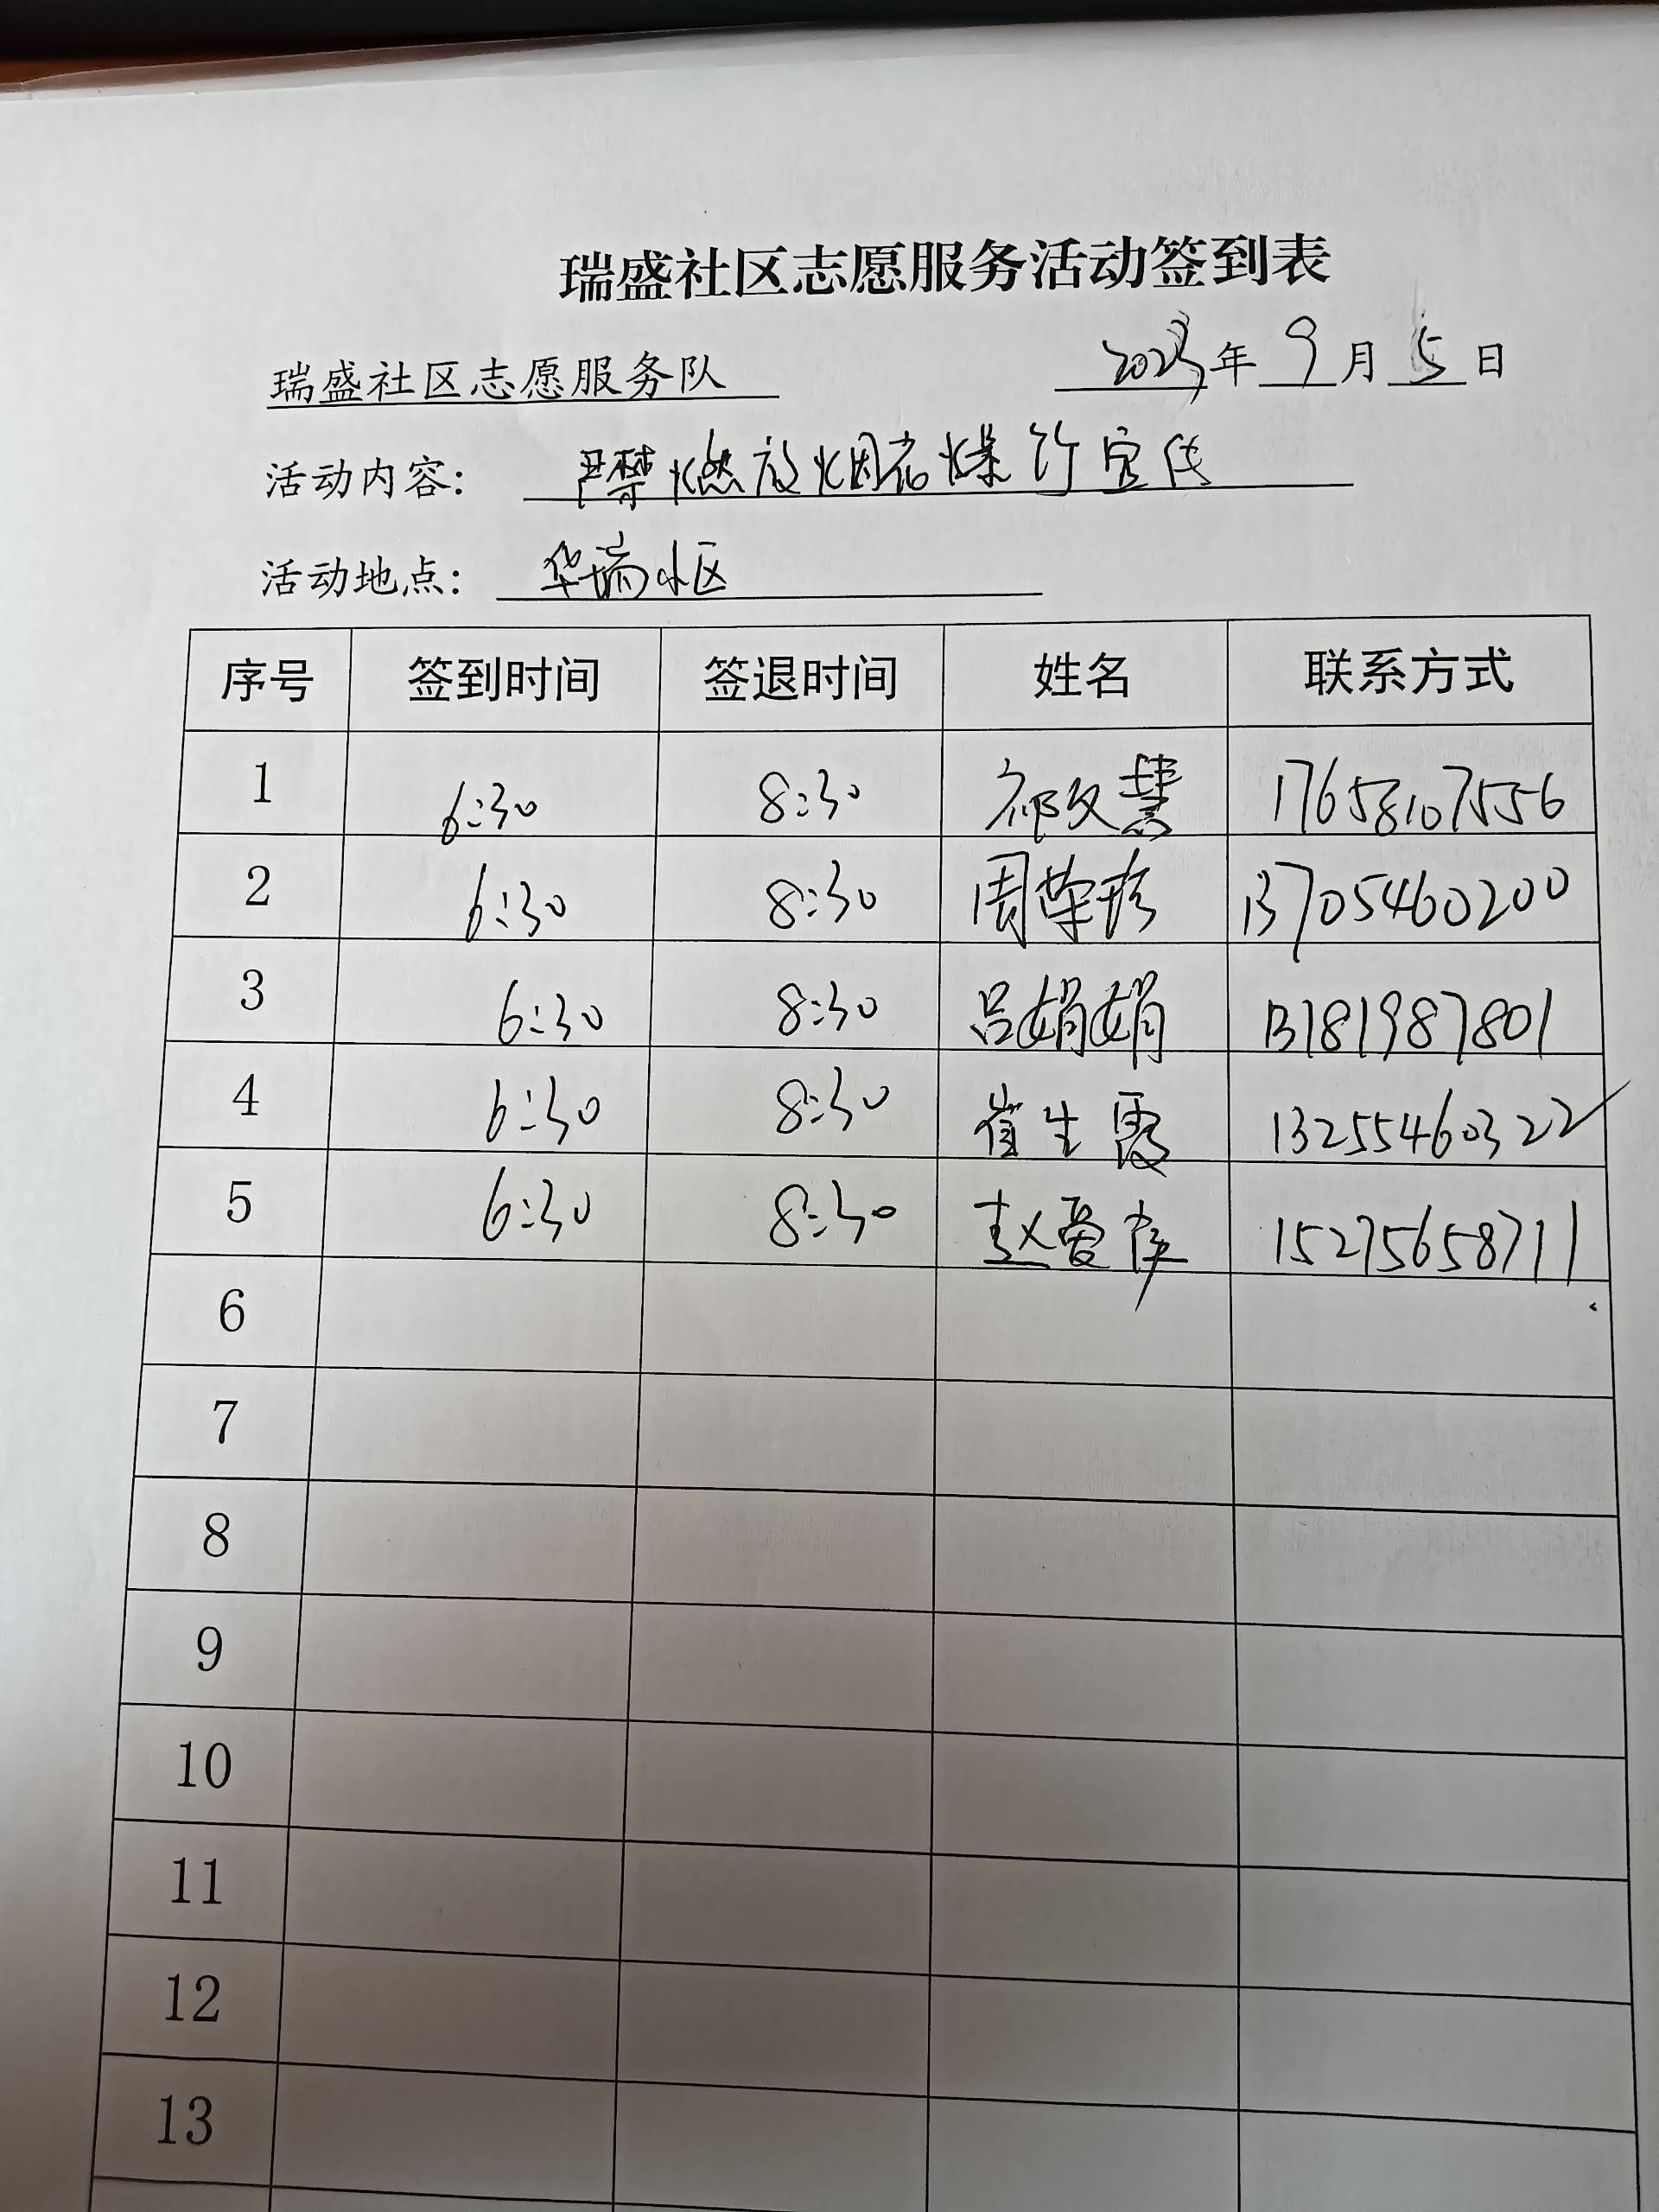 瑞盛社区志愿服务活动签到表
瑞盛社区志愿服务队 2023年 9月 5日
活动内容： 严禁燃放烟花爆竹宣传
活动地点： 华瑞小区
序号 签到时间 签退时间 姓名 联系方式
1 6:30 8:30 祁文慧 17658107556
2 6:30 8:30 周荣珍 13705460200
3 6:30 8:30 吕娟娟 13181987801
4 6:30 8:30 崔生霞 13255460322
5 6:30 8:30 赵爱 15275658711
6
7
8
9
10
11
12
13